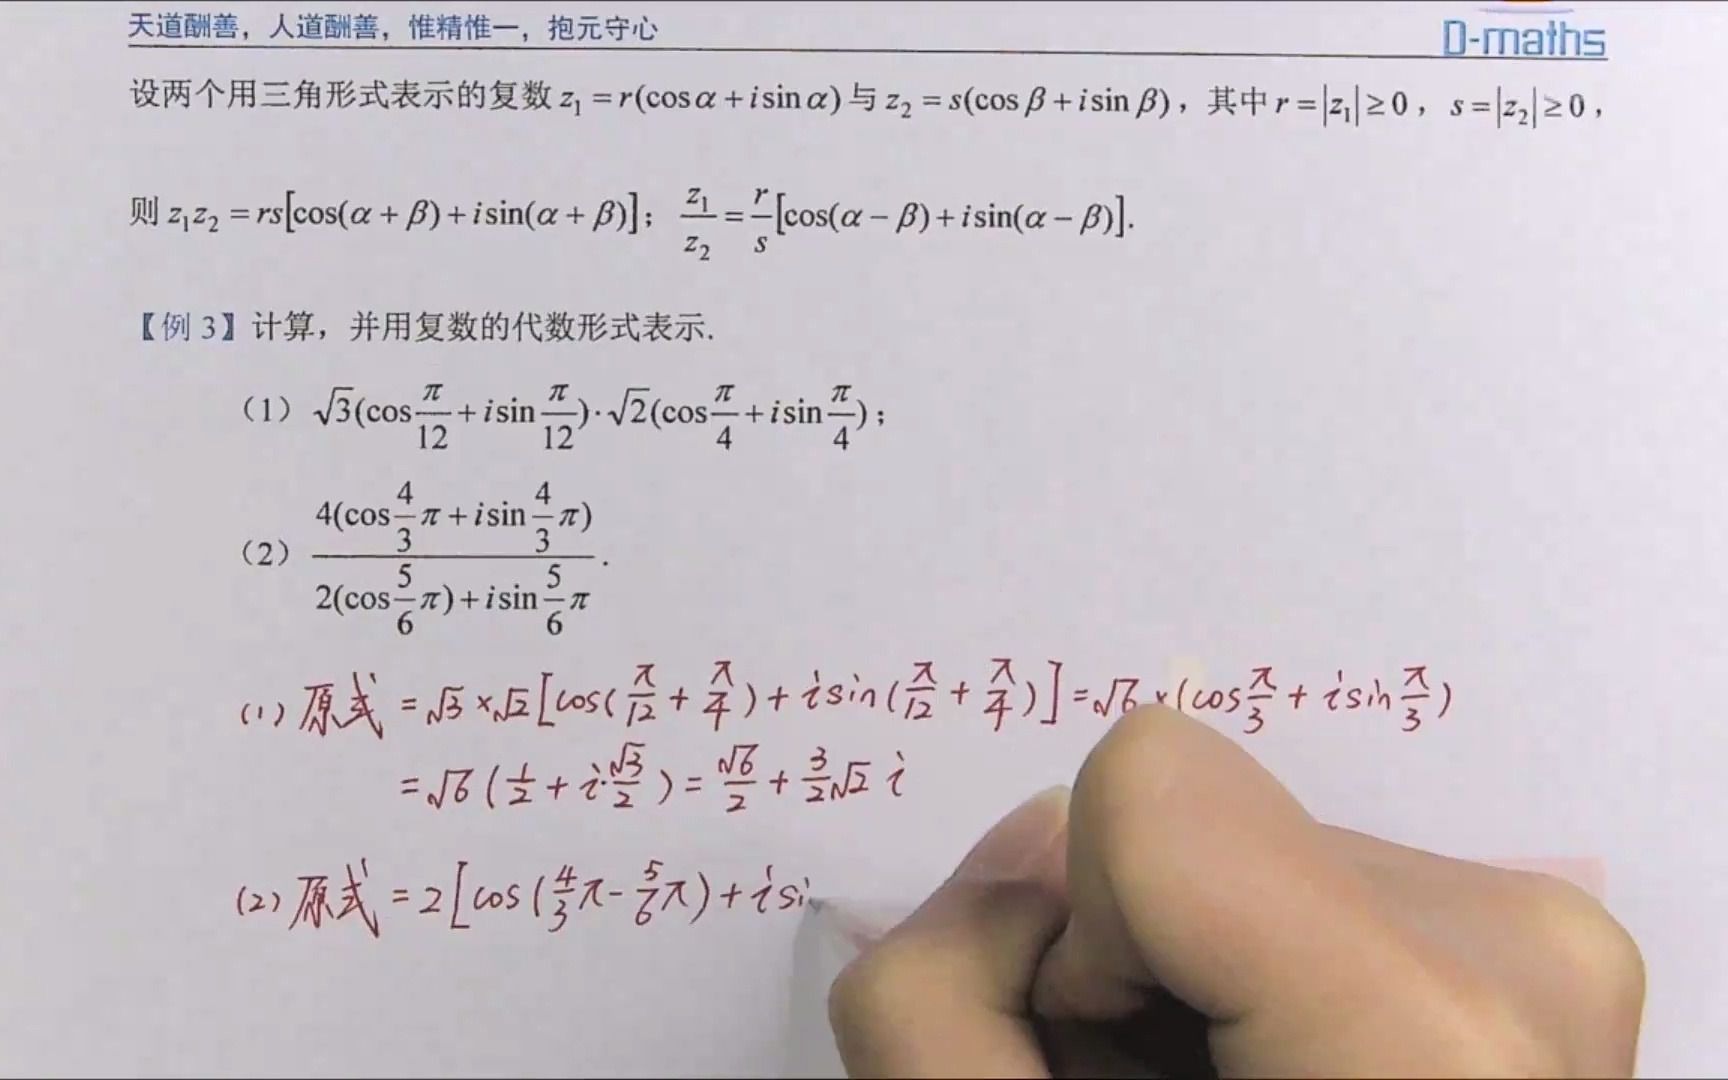 天道酬善，人道酬善，惟精惟一，抱元守心
D-maths
设两个用三角形式表示的复数 z₁ = r(cos α + i sin α) 与 z₂ = s(cos β + i sin β)，其中 r = |z₁| ≥ 0，s = |z₂| ≥ 0，
则 z₁z₂ = rs[cos(α + β) + i sin(α + β)]；z₁/z₂ = r/s [cos(α − β) + i sin(α − β)].
【例 3】计算，并用复数的代数形式表示.
（1）√3(cos π/12 + i sin π/12)·√2(cos π/4 + i sin π/4)；
（2）4(cos 4/3 π + i sin 4/3 π) / 2(cos 5/6 π) + i sin 5/6 π .
(1) 原式 = √3 × √2 [cos(π/12 + π/4) + i sin(π/12 + π/4)] = √6 × (cos π/3 + i sin π/3)
= √6 (1/2 + i·√3/2) = √6/2 + 3/2 √2 i
(2) 原式 = 2 [cos(4/3 π − 5/6 π) + i si